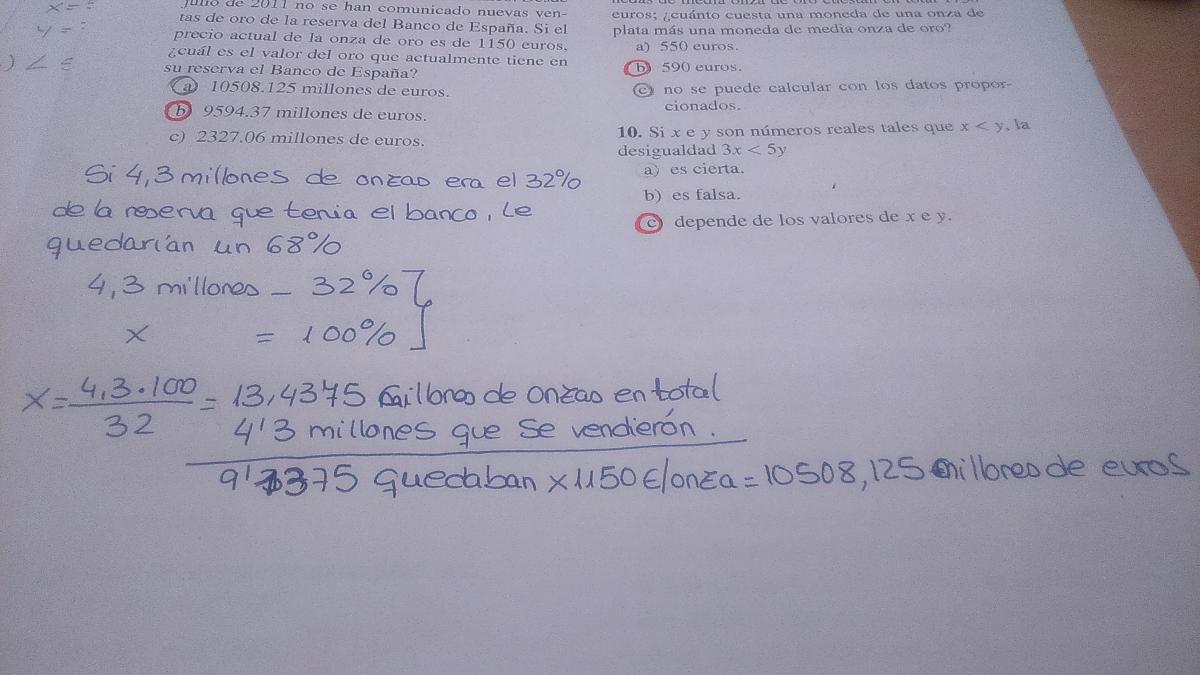 x=
y =
) ∠ =
julio de 2011 no se han comunicado nuevas ven-
tas de oro de la reserva del Banco de España. Si el
precio actual de la onza de oro es de 1150 euros,
¿cuál es el valor del oro que actualmente tiene en
su reserva el Banco de España?
a) 10508.125 millones de euros.
b) 9594.37 millones de euros.
c) 2327.06 millones de euros.
Si 4,3 millones de onzas era el 32%
de la reserva que tenia el banco, le
quedarían un 68%
4,3 millones - 32%
x = 100%
x = 4,3·100 / 32 = 13,4375 millones de onzas en total
4'3 millones que se vendierón.
9'1375 quedaban x 1150 €/onza = 10508,125 millones de euros
nedas de media onza de oro cuestan en total
euros; ¿cuánto cuesta una moneda de una onza de
plata más una moneda de media onza de oro?
a) 550 euros.
b) 590 euros.
c) no se puede calcular con los datos propor-
cionados.
10. Si x e y son números reales tales que x < y, la
desigualdad 3x < 5y
a) es cierta.
b) es falsa.
c) depende de los valores de x e y.